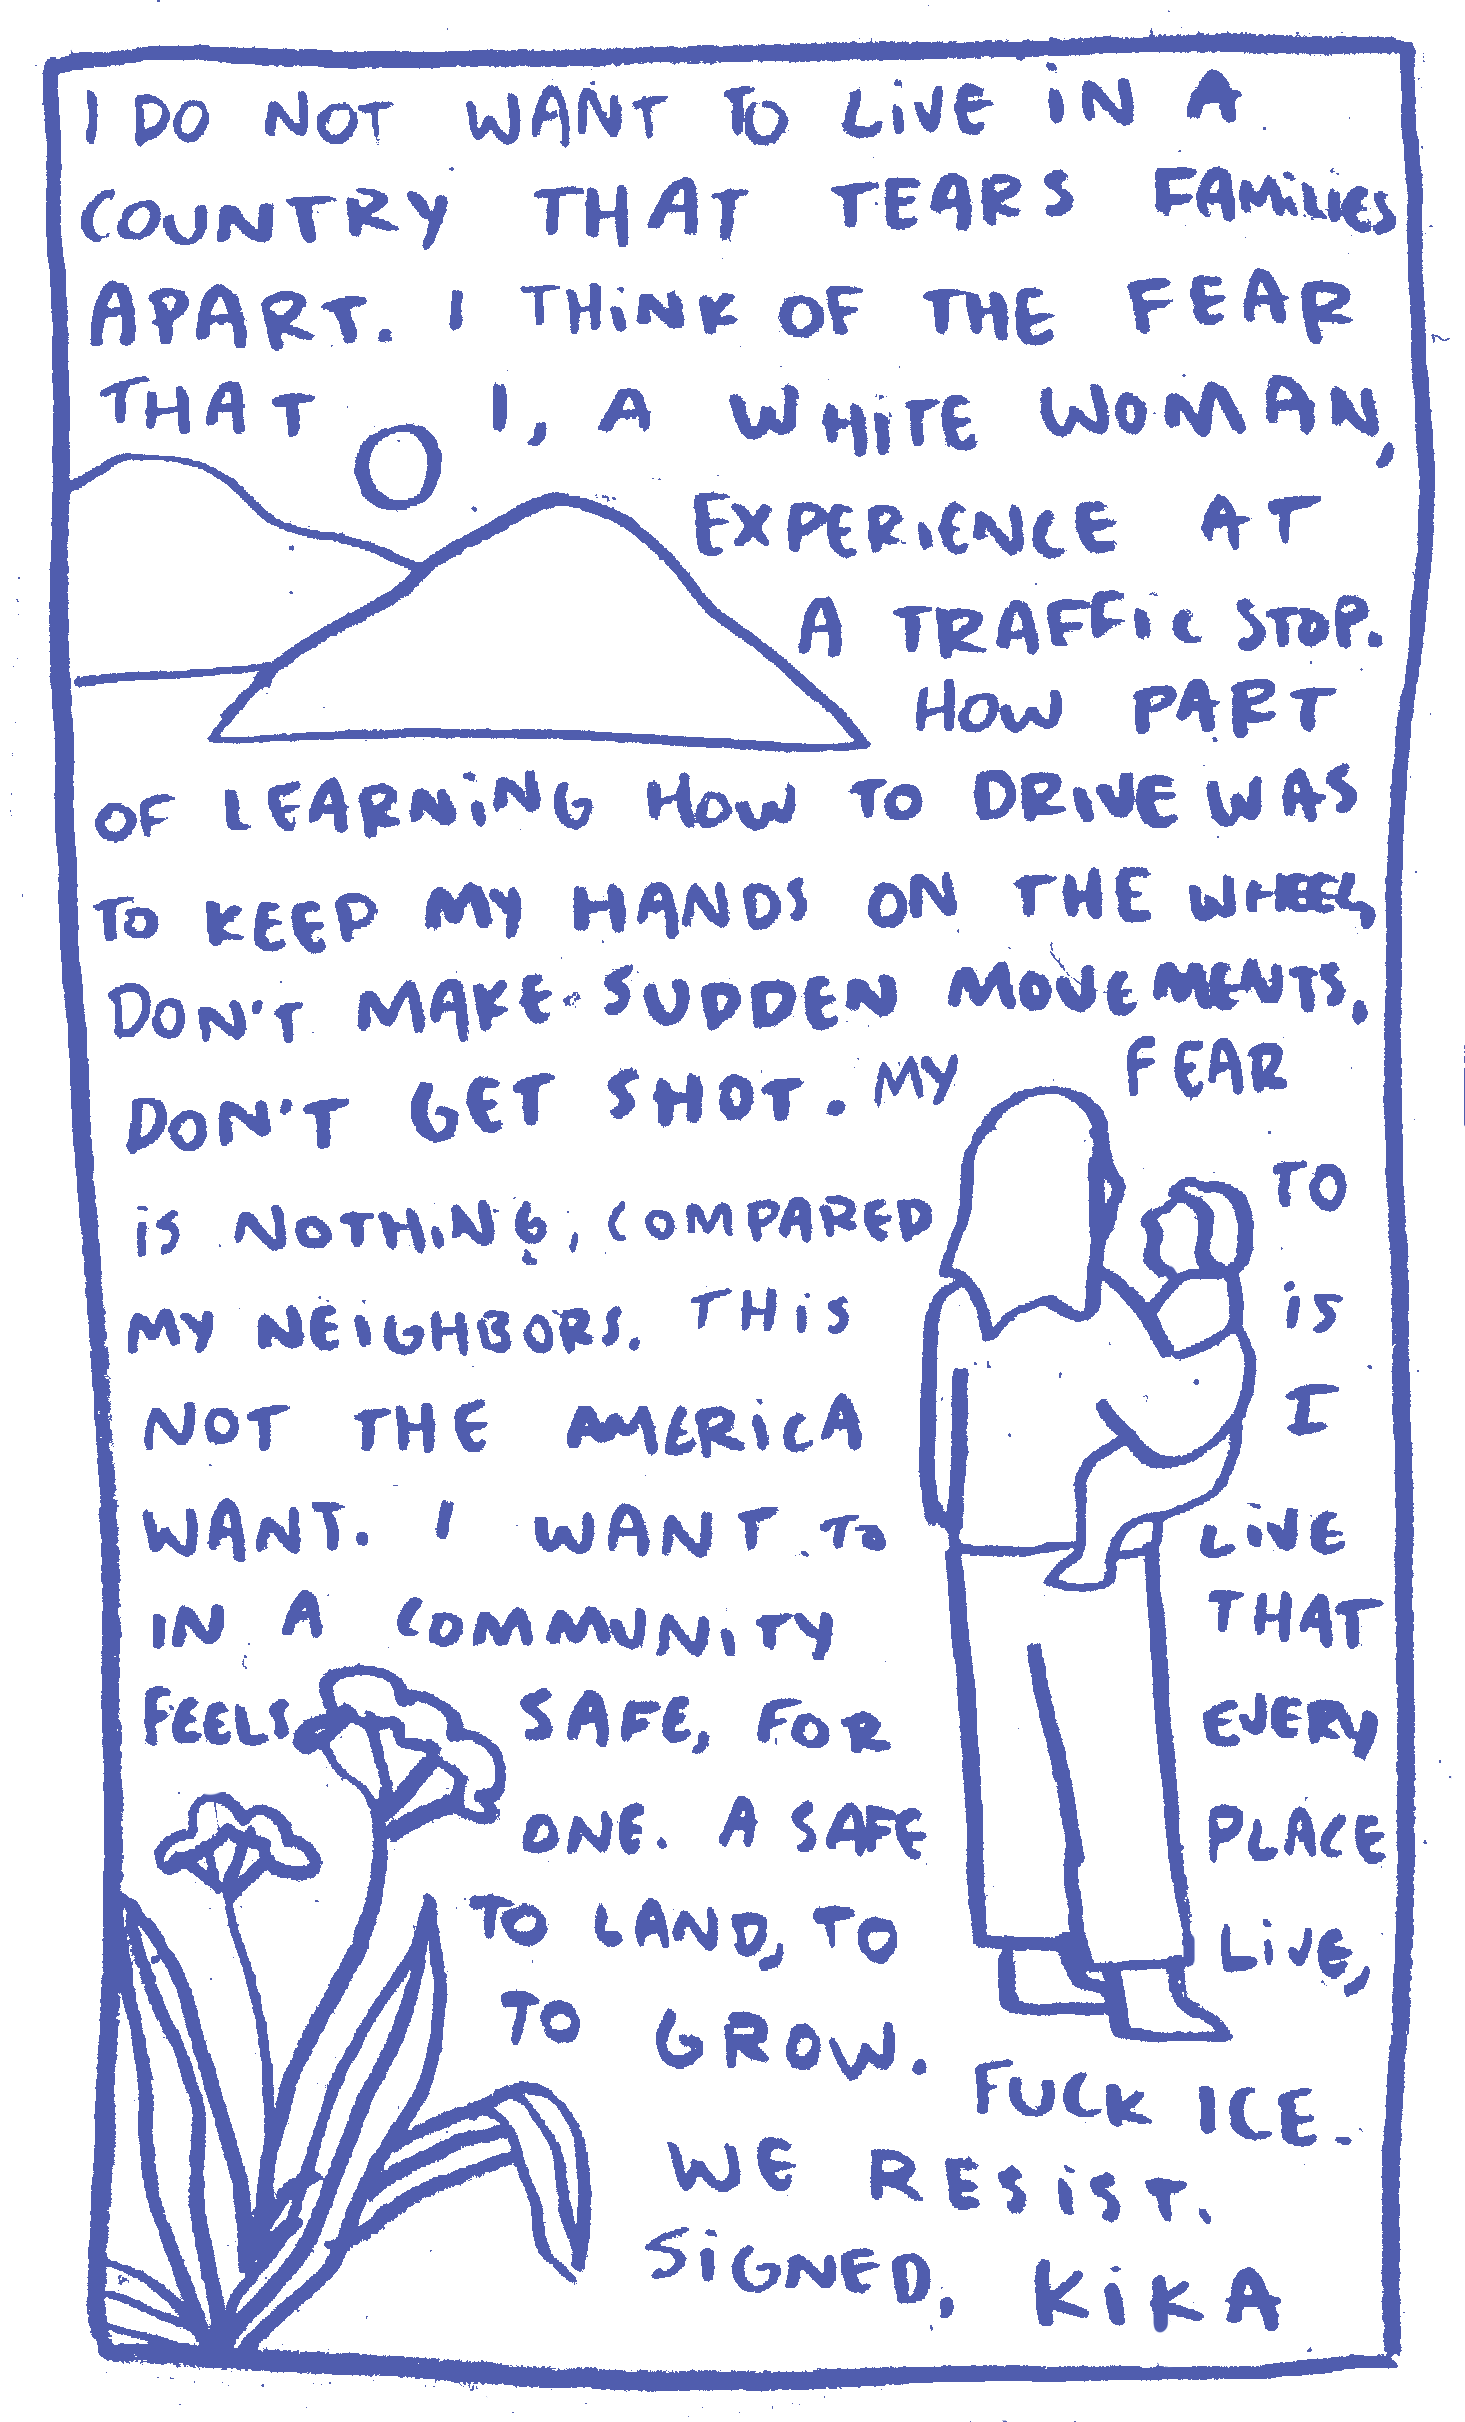 I DO NOT WANT TO LIVE IN A
COUNTRY THAT TEARS FAMILIES
APART. I THINK OF THE FEAR
THAT I, A WHITE WOMAN,
EXPERIENCE AT
A TRAFFIC STOP.
HOW PART
OF LEARNING HOW TO DRIVE WAS
TO KEEP MY HANDS ON THE WHEEL,
DON'T MAKE SUDDEN MOVEMENTS,
DON'T GET SHOT. MY FEAR
IS NOTHING, COMPARED TO
MY NEIGHBORS. THIS IS
NOT THE AMERICA I
WANT. I WANT TO LIVE
IN A COMMUNITY THAT
FEELS SAFE, FOR EVERY
ONE. A SAFE PLACE
TO LAND, TO LIVE,
TO GROW.
FUCK ICE.
WE RESIST.
SIGNED, KIKA